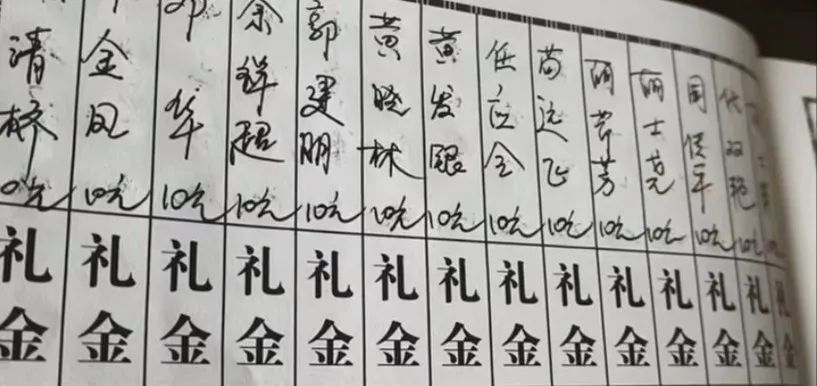 清桥
0元
礼金
金凤
10元
礼金
邓华
10元
礼金
余祥超
10元
礼金
郭建明
10元
礼金
黄晓林
10元
礼金
黄发银
10元
礼金
任应全
10元
礼金
苟远飞
10元
礼金
芳
10元
礼金
士克
10元
礼金
周俊平
10元
礼金
代双艳
10元
礼金
礼金